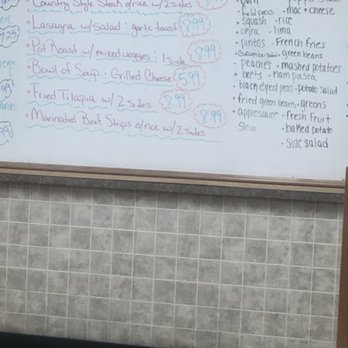 Country Style Steak o/rice w/2 sides
Lasagna w/salad : garlic toast 8.99
Pot Roast w/ mixed veggies : 1 side 8.99
Bowl of Soup : Grilled Cheese 5.99
Fried Tilapia w/ 2 sides 8.99
Marinated Beef Strips o/rice w/2 sides 8.99
field peas · mac + cheese
squash · rice
okra · lima
pintos · French fries
green beans
peaches · mashed potatoes
beets · ham pasta
black eyed peas · potato salad
fried green beans · greens
applesauce · fresh fruit
· baked potato
· side salad